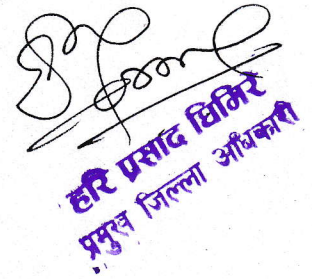 हरि प्रसाद घिमिरे
प्रमुख जिल्ला अधिकारी